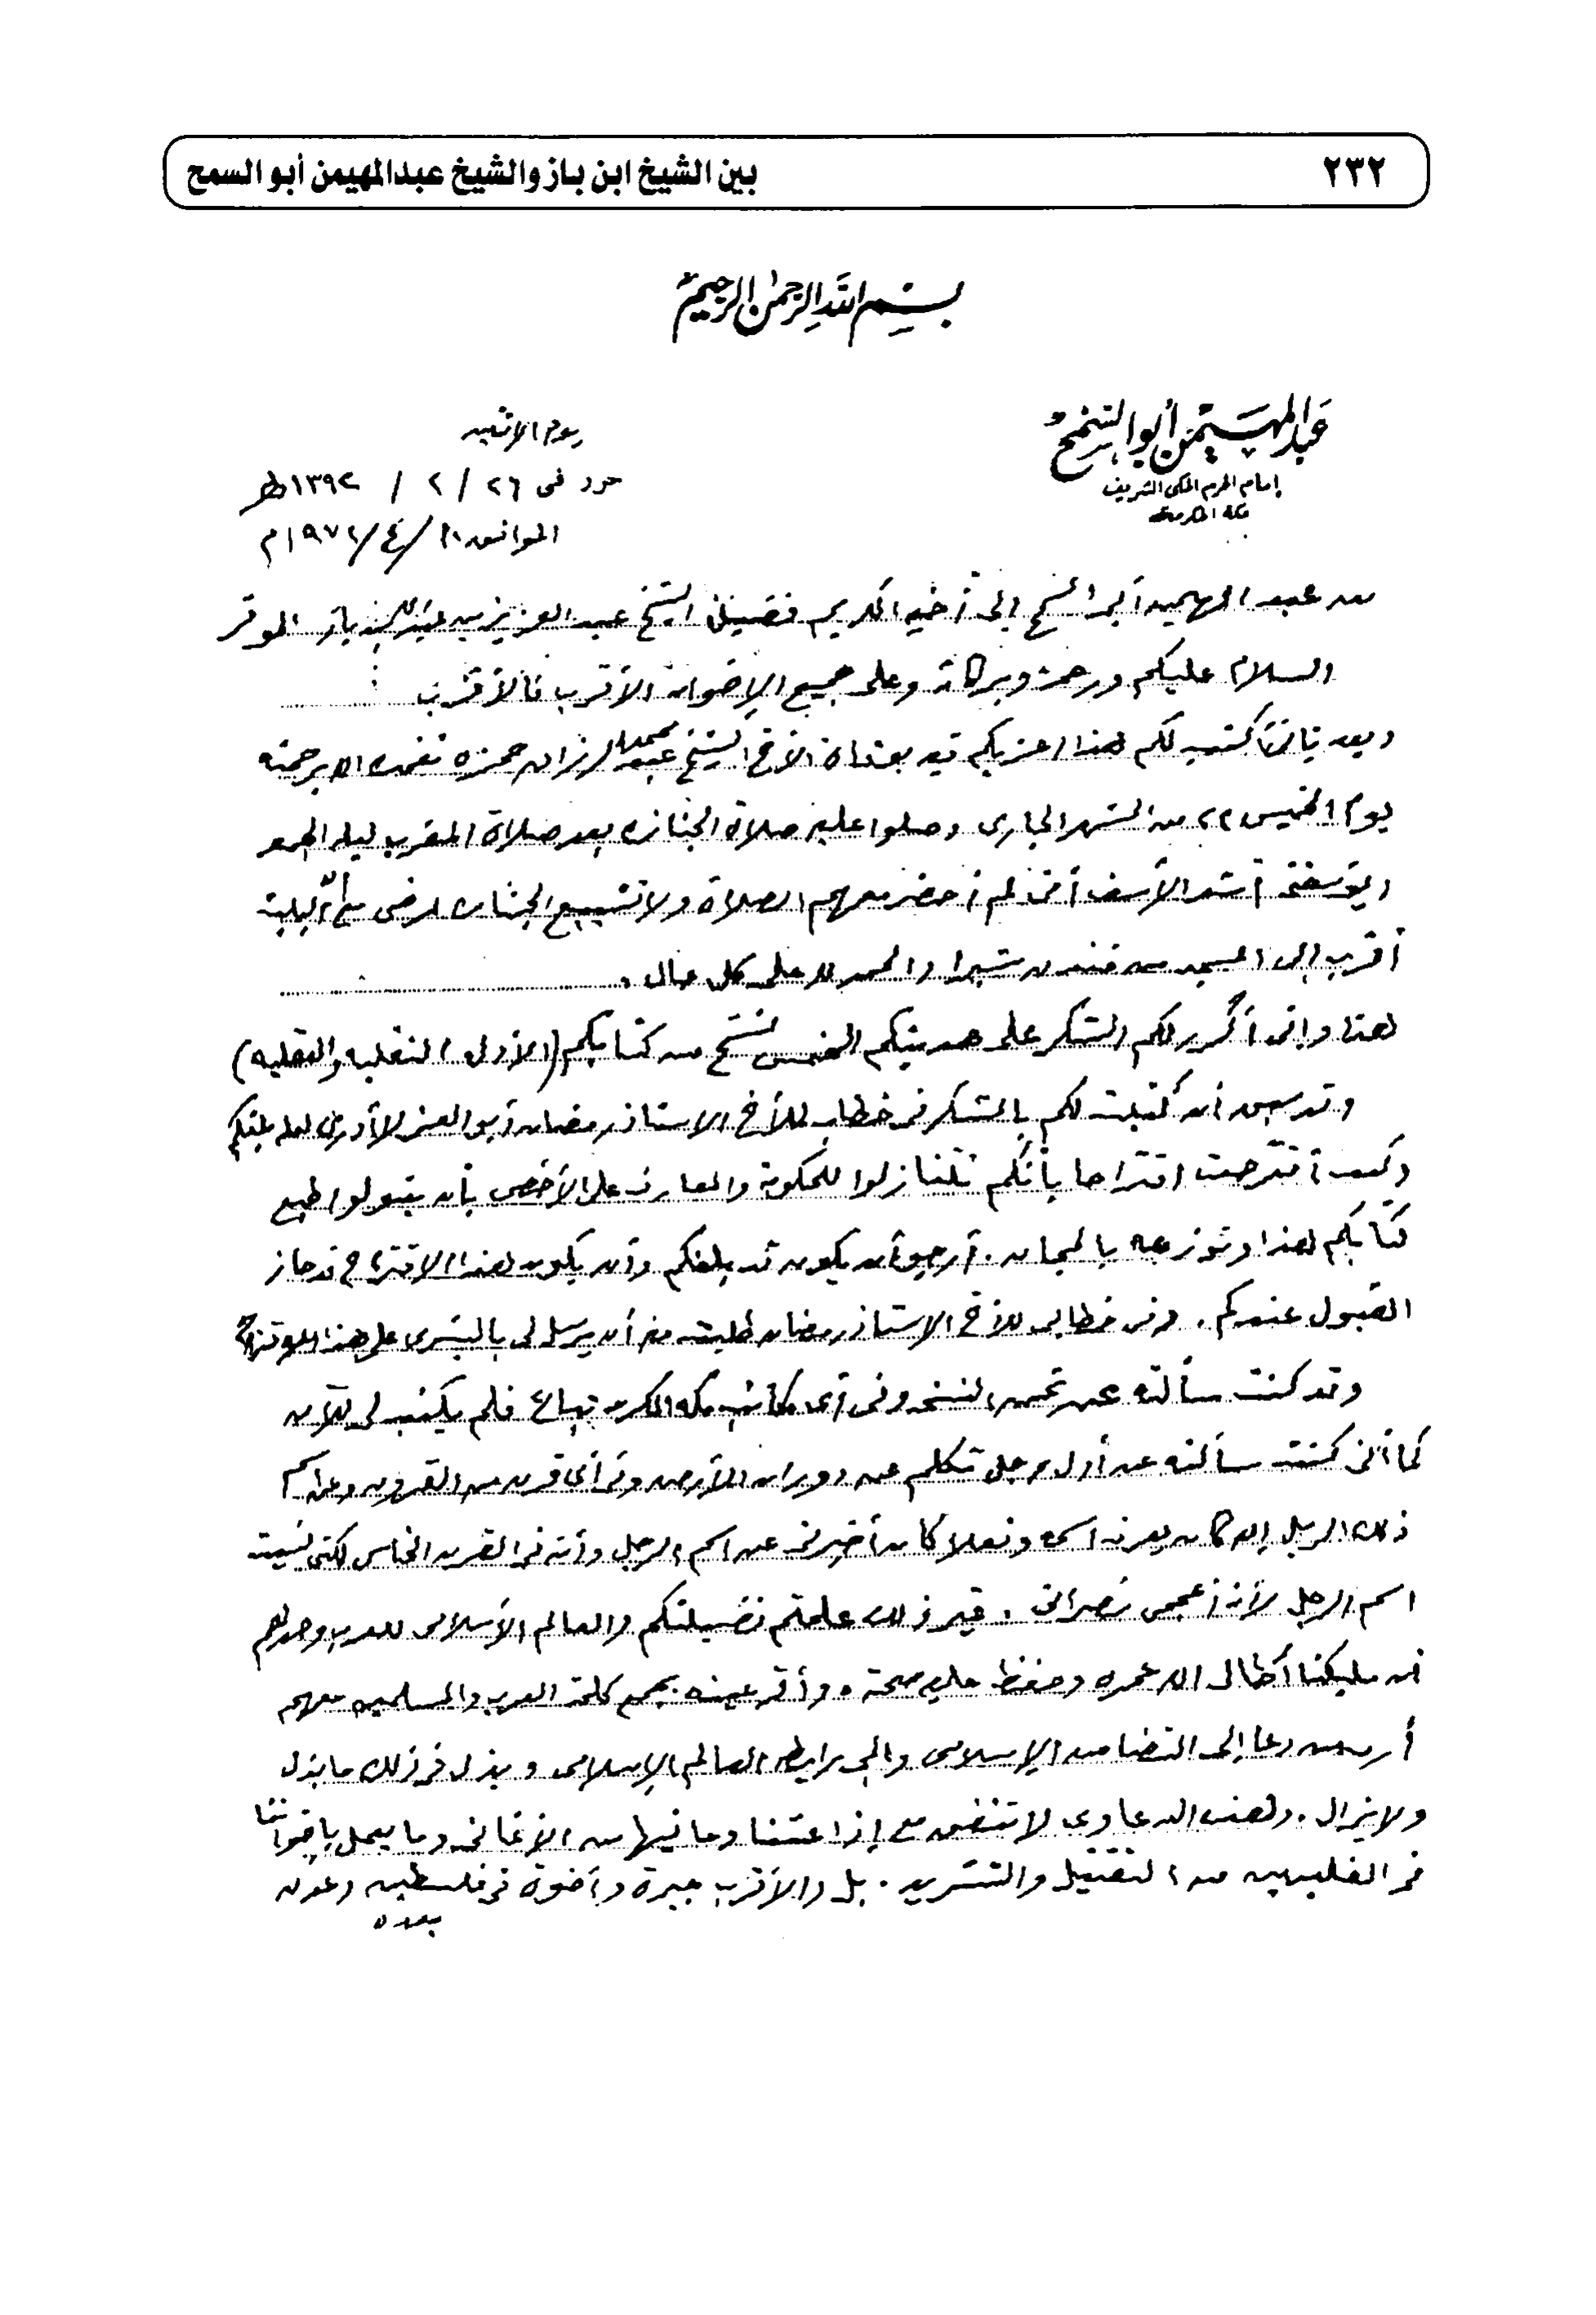 ٢٣٢
بين الشيخ ابن باز والشيخ عبدالمهيمن أبو السمح
بسم الله الرحمن الرحيم
عبد المهيمن أبو السمح
إمام الحرم المكي الشريف
مكة المكرمة
يوم الاثنين
حرر في ٢٦ / ٢ / ١٣٩٢هـ
الموافق ١٠/ ٤/ ١٩٧٢م
من عبد المهيمن أبي السمح إلى أخيه الكريم فضيلة الشيخ عبد العزيز بن عبد الله بن باز الموقر
السلام عليكم ورحمته وبركاته وعلى جميع الإخوان الأقرب فالأقرب
وبعد فإني أكتب لكم هذا أعزيكم فيه بوفاة الأخ الشيخ محمد عبد الرزاق حمزه تغمده الله برحمته
يوم الخميس ٢٢ من الشهر الجاري وصلوا عليه صلاة الجنازه بعد صلاة المغرب ليلة الجمعة
أشد الأسف أني لم أحضر معهم الصلاة ولا تشييع الجنازه لمرضى مع
أقرب إلى المسجد من فندق شبرا والحمد لله على كل حال .
هذا وإني أكرر لكم الشكر على هديتكم الخمس نسخ من كتابكم (الأدلة النقلية والعقلية)
وقد سبق أن كتبت لكم بالشكر في خطاب للأخ الاستاذ رمضان أبو العز لا أدري لعله بلغكم
وكنت أقترحت اقتراحا بأنكم تتنازلوا للحكومة والمعارف على الأخص بأن يتولوا طبع
كتابكم هذا وتوزيعه بالمجان . أرجو أن يكون قد بلغكم وأن يكون هذا الاقتراح قد حاز
القبول عندكم . وفي خطابي للأخ الاستاذ رمضان طلبت منه أن يرسل لي بالبشرى على هذا الاقتراح
وقد كنت سألته عن ثمن النسخه وفي أي مكاتب مكة المكرمه تباع فلم يكتب لي للآن
كما أنني كنت سألته عن أول رجل تكلم عن دوران الأرض وفي أي قرن من القرون وعن اسم
ذلك الرجل إن كان يعرف اسمه وفعلا كان أخبرني عن اسم الرجل وأنه في القرن الخامس لكني نسيت
اسم الرجل لأنه أعجمي نصراني . غير ذلك علمتم فضيلتكم والعالم الأسلامي للعرب وحدهم
أن مليكنا أطال الله عمره وحفظ عليه صحته . وأقر عينه بجمع كلمة العرب والمسلمين معهم
دعا إلى التضامن الإسلامي وإلى رابطة العالم الإسلامي وبذل في ذلك ما بذل
ولا يزال . وهذه الدعاوى لا تتفق مع إذاعتنا وما فيها من الأغاني وما يعمل بإخواننا
في الفليبين من التقتيل والتشريد . بل والأقرب جيرة وأخوة في فلسطين وعدن
بعده